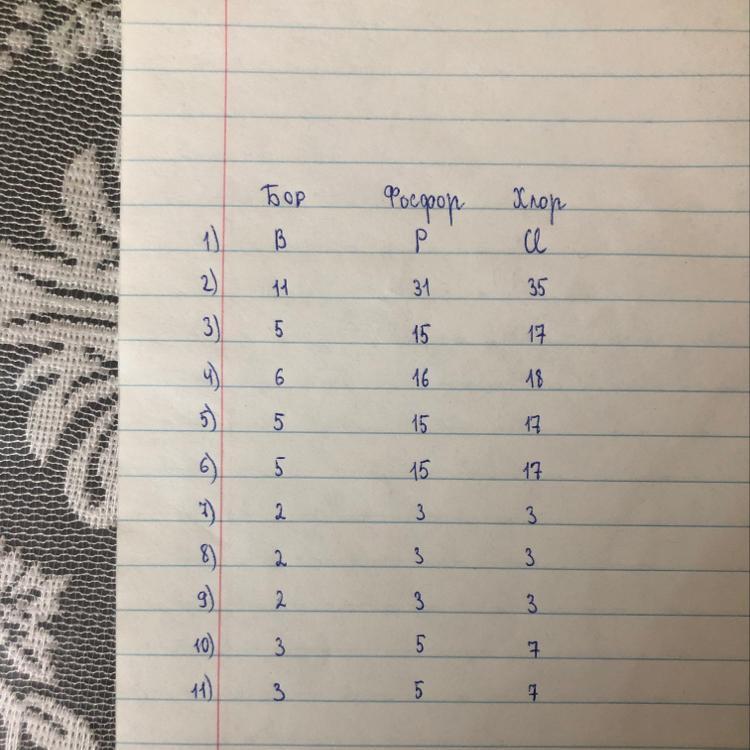 Бор Фосфор Хлор
1) B P Cl
2) 11 31 35
3) 5 15 17
4) 6 16 18
5) 5 15 17
6) 5 15 17
7) 2 3 3
8) 2 3 3
9) 2 3 3
10) 3 5 7
11) 3 5 7